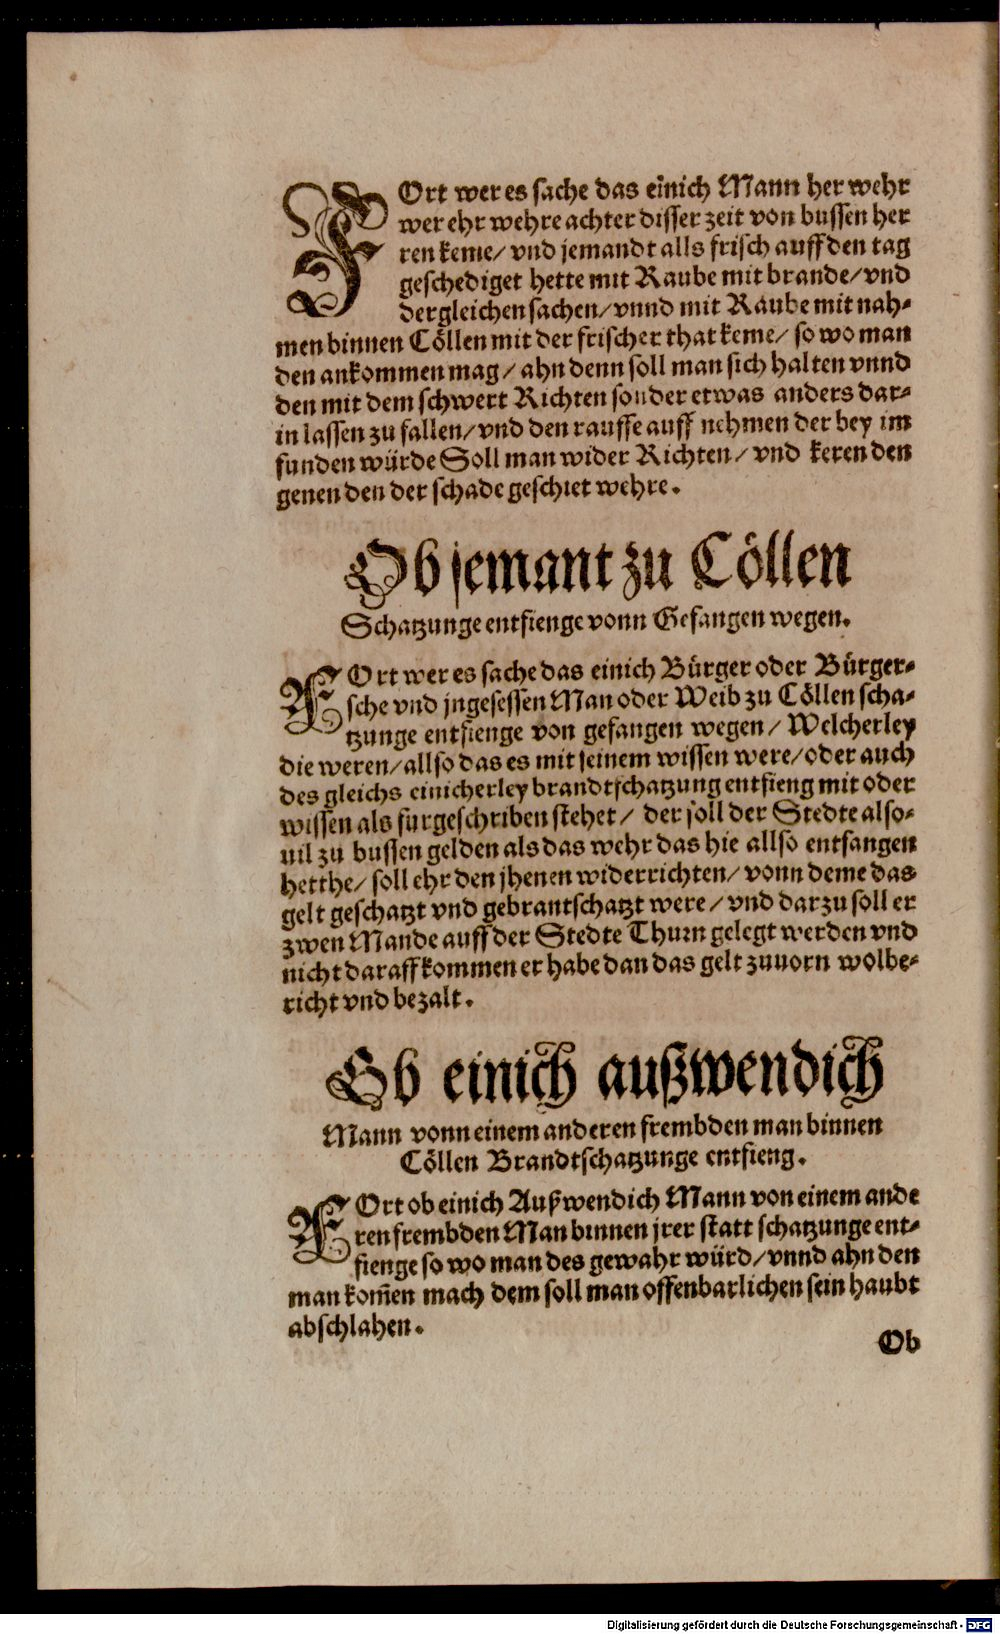 FOrt wer es sache das einich Mann her wehr
wer ehr wehre achter disser zeit von bussen her
ren keme/ vnd jemandt alls frisch auff den tag
geschediget hette mit Raube mit brande/ vnd
dergleichen sachen/ vnnd mit Raube mit nah-
men binnen Cöllen mit der frischer that keme/ so wo man
den ankommen mag/ ahn denn soll man sich halten vnnd
den mit dem schwert Richten sonder etwas anders dar-
in lassen zu fallen/ vnd den rauffe auff nehmen der bey im
funden würde Soll man wider Richten/ vnd keren den
genen den der schade geschiet wehre.
Ob jemant zu Cöllen
Schatzunge entfienge vonn Gefangen wegen.
FOrt wer es sache das einich Bürger oder Bürger-
sche vnd jngesessen Man oder Weib zu Cöllen scha-
tzunge entfienge von gefangen wegen/ Welcherley
die weren/ allso das es mit seinem wissen were/ oder auch
des gleichs einicherley brandtschatzung entfieng mit oder
wissen als furgeschriben stehet/ der soll der Stedte also-
uil zu bussen gelden als das wehr das hie allso entfangen
hetthe/ soll ehr den jhenen widerrichten/ vonn deme das
gelt geschatzt vnd gebrantschatzt were/ vnd darzu soll er
zwen Mande auff der Stedte Thurn gelegt werden vnd
nicht daraff kommen er habe dan das gelt zuuorn wolbe-
richt vnd bezalt.
Ob einich außwendich
Mann vonn einem anderen frembden man binnen
Cöllen Brandtschatzunge entfieng.
FOrt ob einich Außwendich Mann von einem ande
ren frembden Man binnen jrer statt schatzunge ent-
fienge so wo man des gewahr würd/ vnnd ahn den
man kom̄en mach dem soll man offenbarlichen sein haubt
abschlahen.
Ob
Digitalisierung gefördert durch die Deutsche Forschungsgemeinschaft - DFG